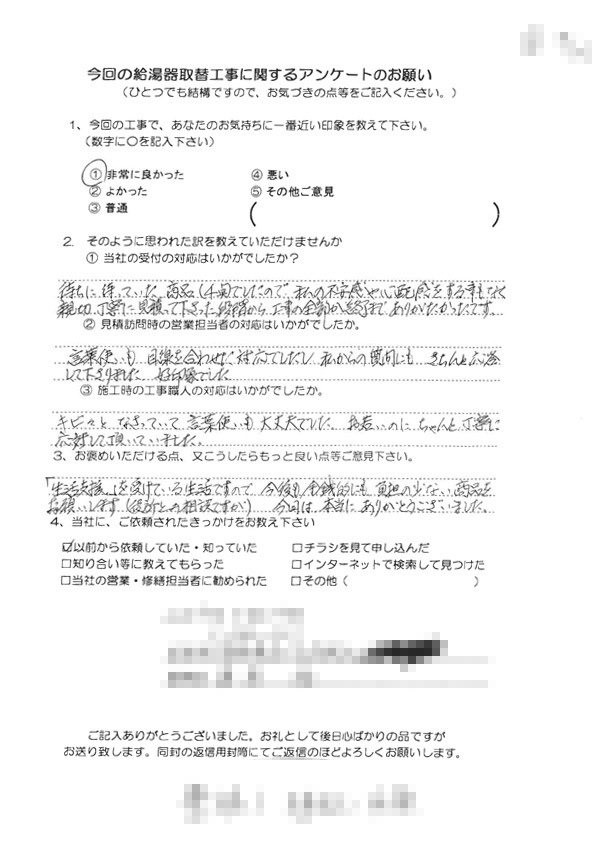 今回の給湯器取替工事に関するアンケートのお願い
（ひとつでも結構ですので、お気づきの点等をご記入ください。）
1、今回の工事で、あなたのお気持ちに一番近い印象を教えて下さい。
（数字に〇を記入下さい）
① 非常に良かった ④ 悪い
② よかった ⑤ その他ご意見
③ 普通 （ ）
2. そのように思われた訳を教えていただけませんか
① 当社の受付の対応はいかがでしたか？
待ちに待っていた商品 でしたので 私の不安感や心配感をする事もなく
親切、丁寧に見積って下さった段階から 工事の全部が終了まで ありがたかったです。
② 見積訪問時の営業担当者の対応はいかがでしたか。
言葉使いも 目線を合わせた対応でしたし 私からの質問にも きちんと応答
して下さりました 好印象でした
③ 施工時の工事職人の対応はいかがでしたか。
キビキビと なさっていて 言葉使いも大丈夫でした。お若いのに ちゃんと丁寧に
応対して頂いていました。
3、お褒めいただける点、又こうしたらもっと良い点等ご意見下さい。
「生活支援」を受けている生活ですので 今後も 金銭的にも 負担の少ない商品を
お願いします（役所との相談ですが） 今回は 本当に ありがとうございました。
4、当社に、ご依頼されたきっかけをお教え下さい
☑以前から依頼していた・知っていた □チラシを見て申し込んだ
□知り合い等に教えてもらった □インターネットで検索して見つけた
□当社の営業・修繕担当者に勧められた □その他（ ）
ご記入ありがとうございました。お礼として後日心ばかりの品ですが
お送り致します。同封の返信用封筒にてご返信のほどよろしくお願いします。